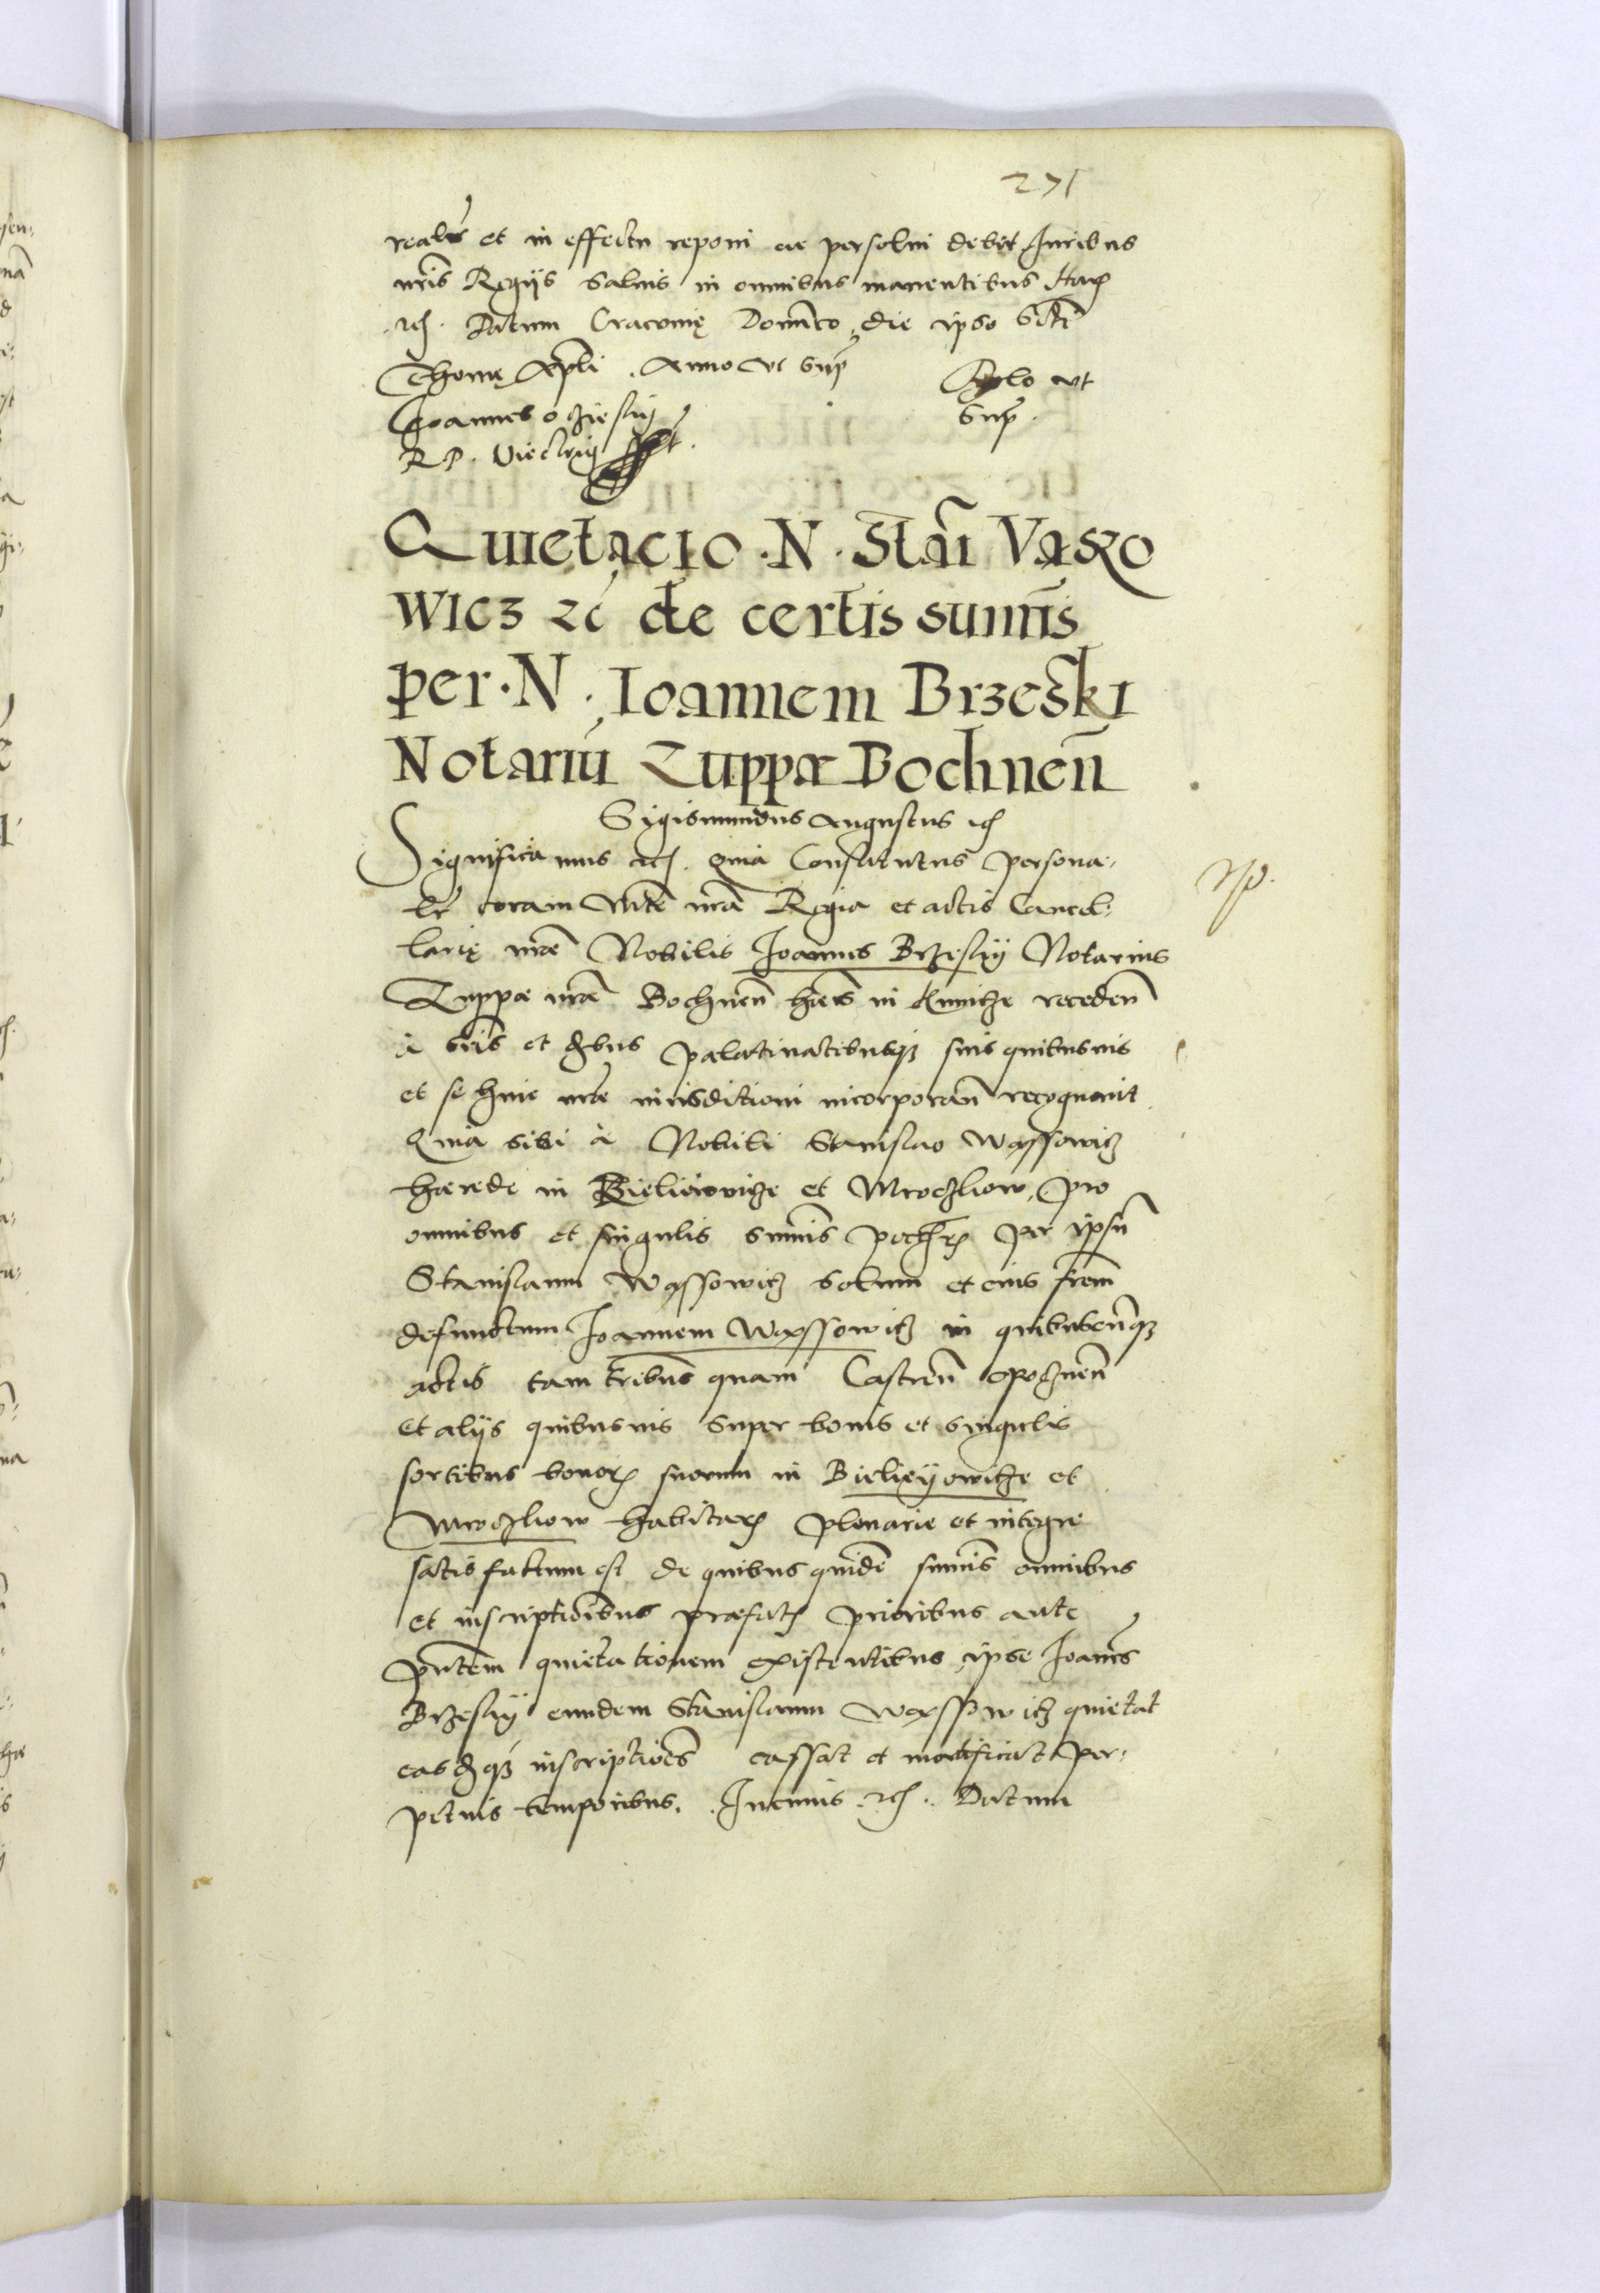 271
realr̃ et in effectu reponi ac persolui debet Iuribus
nr̃is Regijs saluis in omnibus manentibus Harꝝ
rcꝭ. Datum Cracouię Dominico die ipso Scti
Thomę Apli. Anno vt supͣ
Rlo vt
supͣ.
Joannes oczieskij
R P. Vicecan̄
Quietacio . N . Stāi Vasso
wicz zc̄ de certis sum̄is
per . N . Ioannem Brzeski
Notariū Zuppæ Bochneñ
Sigismundus Augustus rcꝭ
Significamus rcꝭ. quia Constitutus persona-
lr̃ coram Mtē nr̃a Regia et actis Cancel-
larię nr̃æ Nobilis Joannes Brzeskij Notarius
Zuppæ nr̃æ Bochneñ hæres in receden̄
à tr̃is et palatinatibusqꝫ suis quibusuis
et se huic nr̃æ iurisditioni incorporan̄ recognouit
Quia sibi à Nobili Stanislao Wassowicz
hærede in Bieliowicze et Mroczkow, pro
omnibus et singulis sum̄is pecčrꝝ per ipsū
Stanislaum Wassowicz solum et eius fr̃em
defunctum Joannem Wassowicz in quibuscūqꝫ
actis tam tr̃ibus quam Castreñ Opocznen̄
et alijs quibusuis super bonis et singulis
sortibus bonorꝝ suorum in Bielieyowicze et
Mroczkow habitarꝝ plenarie et integre
satisfactum est de quibus quidē sum̄is omnibus
et inscriptiōibus præfatꝭ prioribus ante
pñtem quietationem existentibus ipse Joañes
Brzeskij eundem Stanislaum Wassowicz quietat
easdēqꝫ inscriptiōes cassat et mortificat per-
petuis temporibus. In cuius rcꝭ. Datum